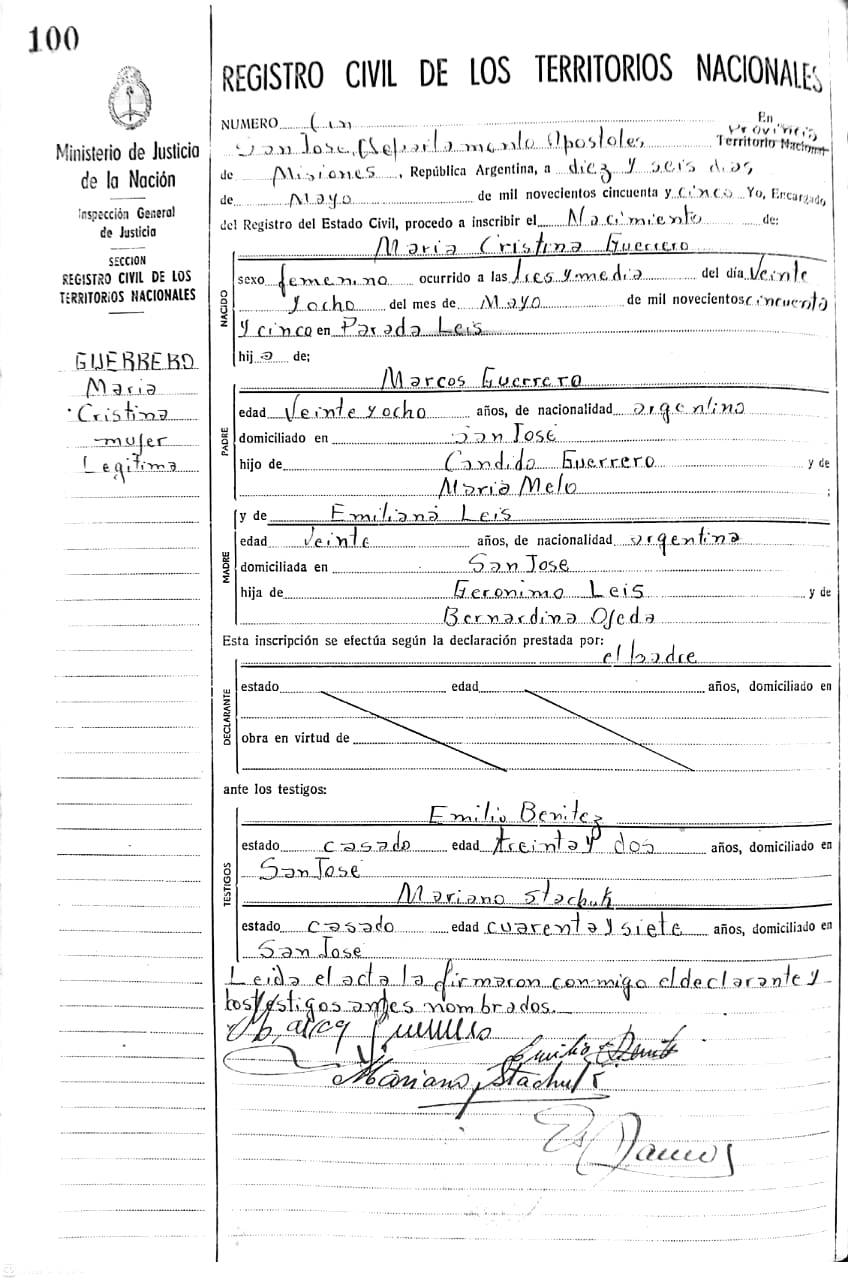 100
Ministerio de Justicia
de la Nación
Inspección General
de Justicia
SECCION
REGISTRO CIVIL DE LOS
TERRITORIOS NACIONALES
GUERRERO
Maria
Cristina
mujer
Legitima
REGISTRO CIVIL DE LOS TERRITORIOS NACIONALES
En
Provincia
NUMERO Cien
San Jose, Departamento Apostoles, Territorio Nacional
de Misiones, República Argentina, a diez y seis dias
de Mayo de mil novecientos cincuenta y cinco Yo, Encargado
del Registro del Estado Civil, procedo a inscribir el Nacimiento de:
NACIDO
Maria Cristina Guerrero
sexo femenino ocurrido a las tres y media del día Veinte
y ocho del mes de Mayo de mil novecientos cincuenta
y cinco en Parada Leis
hij a de;
PADRE
Marcos Guerrero
edad Veinte y ocho años, de nacionalidad argentino
domiciliado en San José
hijo de Candido Guerrero y de
Maria Melo ;
MADRE
y de Emiliana Leis
edad Veinte años, de nacionalidad argentina
domiciliada en San Jose
hija de Geronimo Leis y de
Bernardina Ojeda
Esta inscripción se efectúa según la declaración prestada por:
el padre
DECLARANTE
estado edad años, domiciliado en
obra en virtud de
ante los testigos:
TESTIGOS
Emilio Benitez
estado casado edad treinta y dos años, domiciliado en
San Jose
Mariano Stachuk
estado casado edad cuarenta y siete años, domiciliado en
San Jose
Leida el acta la firmaron conmigo el declarante y
los testigos antes nombrados.
Emilio Benit
Mariano Stachuk